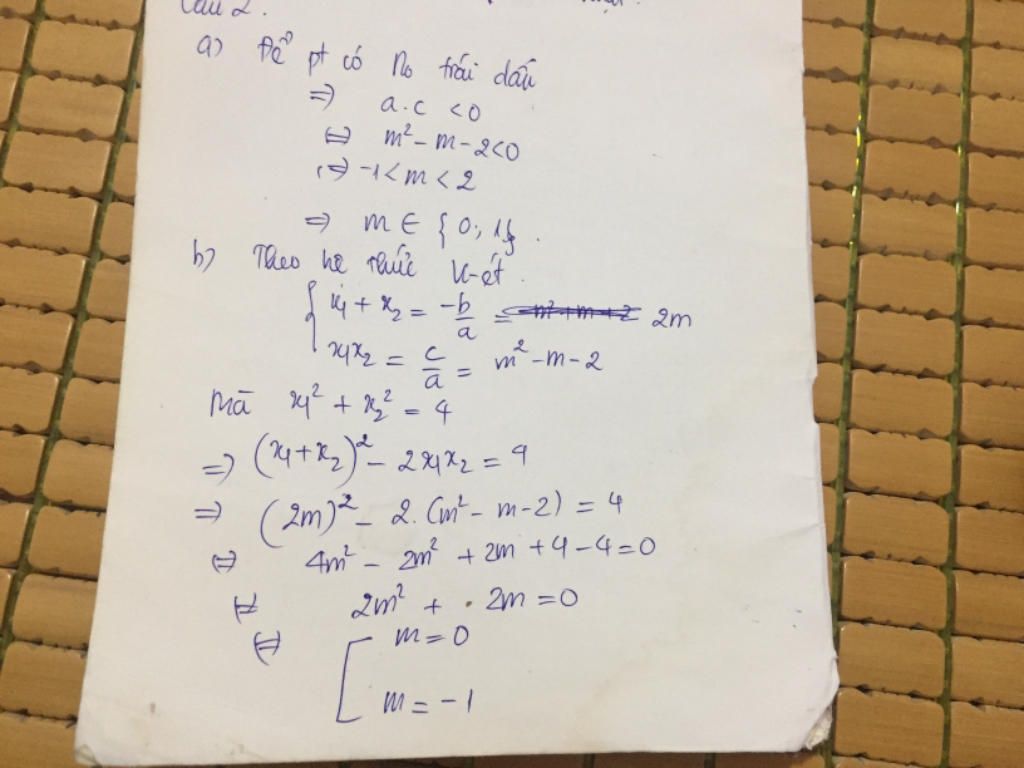 Câu 2.
a) Để pt có no trái dấu
=> a.c < 0
<=> m² - m - 2 < 0
=> -1 < m < 2
=> m ∈ {0; 1}.
b) Theo hệ thức Vi-ét.
{ x₁ + x₂ = -b/a = 2m
x₁x₂ = c/a = m² - m - 2
Mà x₁² + x₂² = 4
=> (x₁ + x₂)² - 2x₁x₂ = 4
=> (2m)² - 2.(m² - m - 2) = 4
<=> 4m² - 2m² + 2m + 4 - 4 = 0
<=> 2m² + 2m = 0
<=> [ m = 0
m = -1